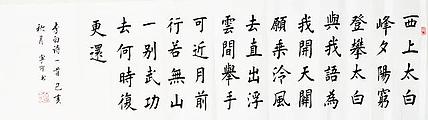 西上太白
峰夕陽窮
登攀太白
與我語為
我開天關
願乘泠風
去直出浮
雲間舉手
可近月前
行若無山
一別武功
去何時復
更還
李白诗一首己亥
秋月